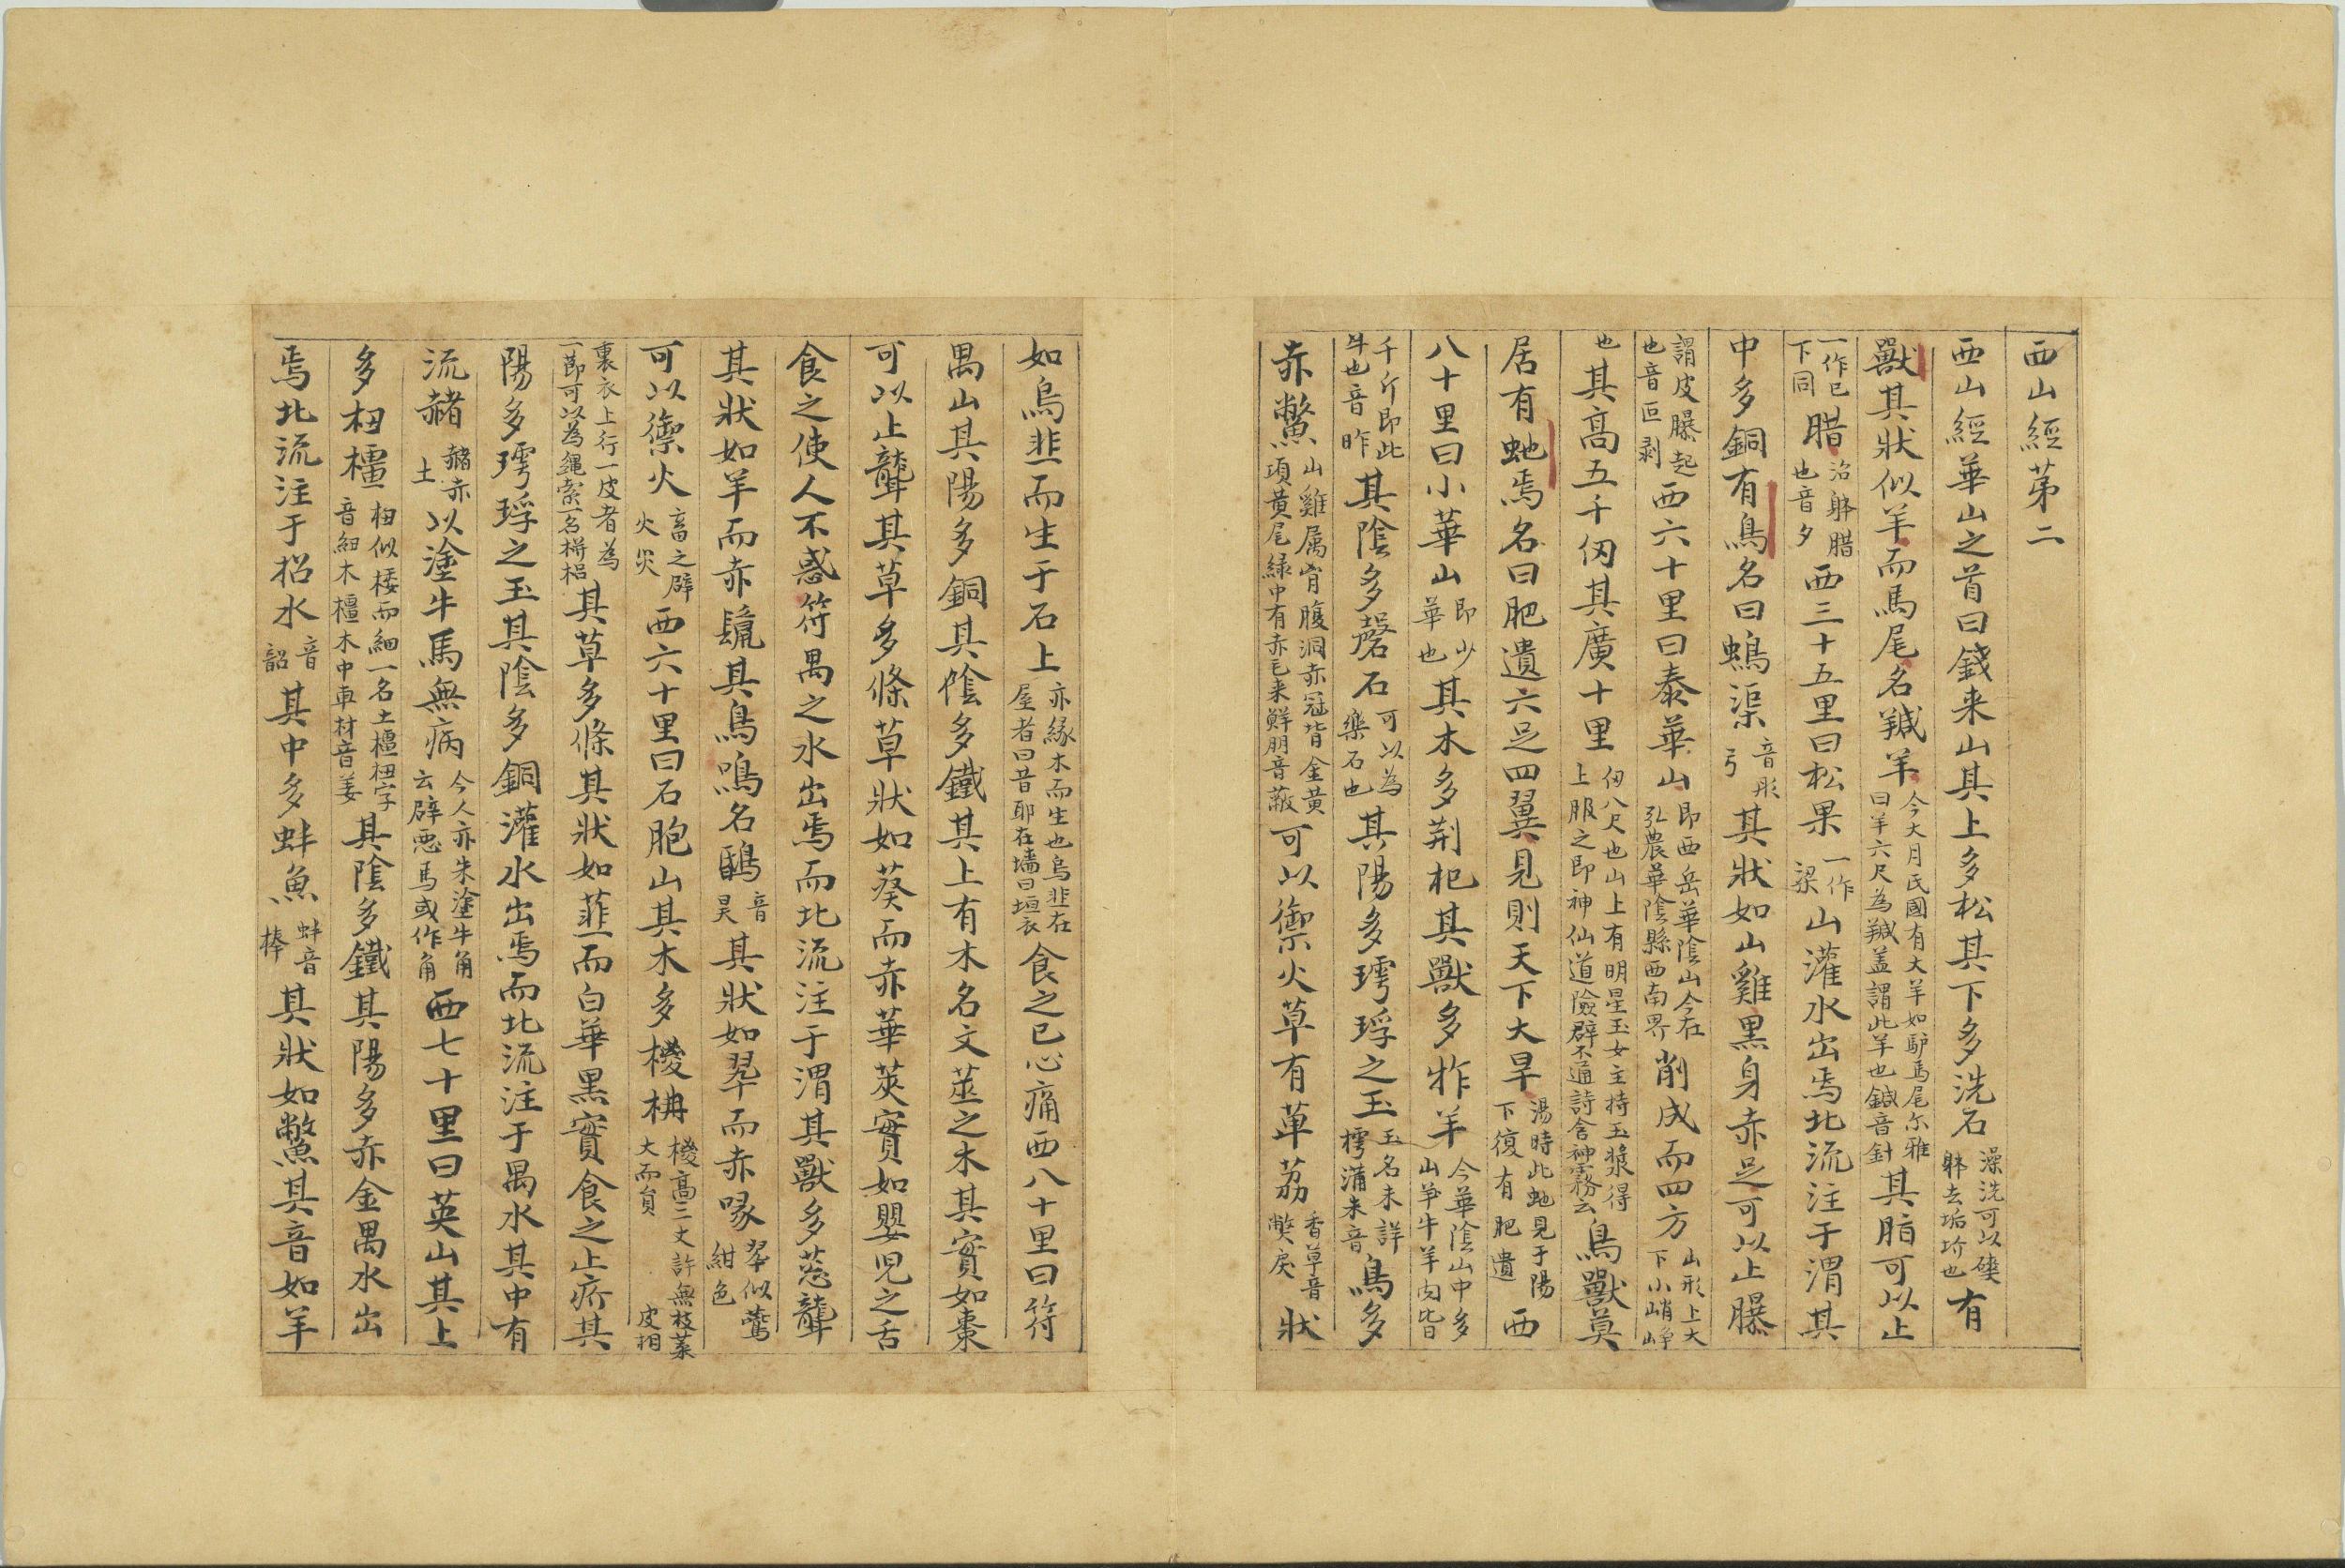 西山經第二
西山經華山之首曰錢来山其上多松其下多洗石澡洗可以磢躰去垢圿也有
獸其狀似羊而馬尾名羬羊今大月氏國有大羊如驴馬尾尔雅曰羊六尺為羬盖謂此羊也鍼音針其脂可以止
一作已下同腊治躰腊也音夕西三十五里曰松果一作梁山灌水出焉北流注于渭其
中多銅有鳥名曰螐渠音彤弓其狀如山雞黑身赤足可以止𦢊
謂皮𦢊起也音叵剥西六十里曰泰華山即西岳華陰山今在弘農華陰縣西南界削成而四方山形上大下小峭崢
也其高五千仞其廣十里仞八尺也山上有明星玉女主持玉漿得上服之即神仙道險辟不通詩含神霧云鳥獸莫
居有虵焉名曰肥遺六足四翼見則天下大旱湯時此虵見于陽下復有肥遺西
八十里曰小華山即少華也其木多荆杞其獸多㸲羊今華陰山中多山羊牛羊肉皆
千斤即此牛也音昨其陰多磬石可以為樂石也其陽多㻬琈之玉玉名未詳樗蒲未音鳥多
赤鷩山雞属胷腹洞赤冠背金黄項黄尾緑中有赤毛来鮮朋音蔽可以禦火草有萆荔香草音獘戾狀
如烏韭而生于石上亦緣木而生也烏韭在屋者曰昔耶在墻曰垣衣食之已心痛西八十里曰符
禺山其陽多銅其陰多鐵其上有木名文莖之木其實如棗
可以止聾其草多條草狀如葵而赤華莢實如嬰児之舌
食之使人不惑符禺之水出焉而北流注于渭其獸多䓗聾
其狀如羊而赤鬣其鳥鳴名鴖音旻其狀如翠而赤喙翠似鷰紺色
可以禦火畜之辟火灾西六十里曰石脆山其木多椶枏椶高三丈許無枝葉大而貟皮相
裏衣上行一皮者為一節可以為繩索一名栟梠其草多條其狀如韮而白華黑實食之止疥其
陽多㻬琈之玉其陰多銅灌水出焉而北流注于禺水其中有
流赭赭赤土以塗牛馬無病今人亦朱塗牛角云辟惡馬或作角西七十里曰英山其上
多杻橿杻似㯈而細一名土橿杻字音紐木橿木中車材音姜其陰多鐵其陽多赤金禺水出
焉北流注于招水音韶其中多䖫魚䖫音棒其狀如鱉其音如羊